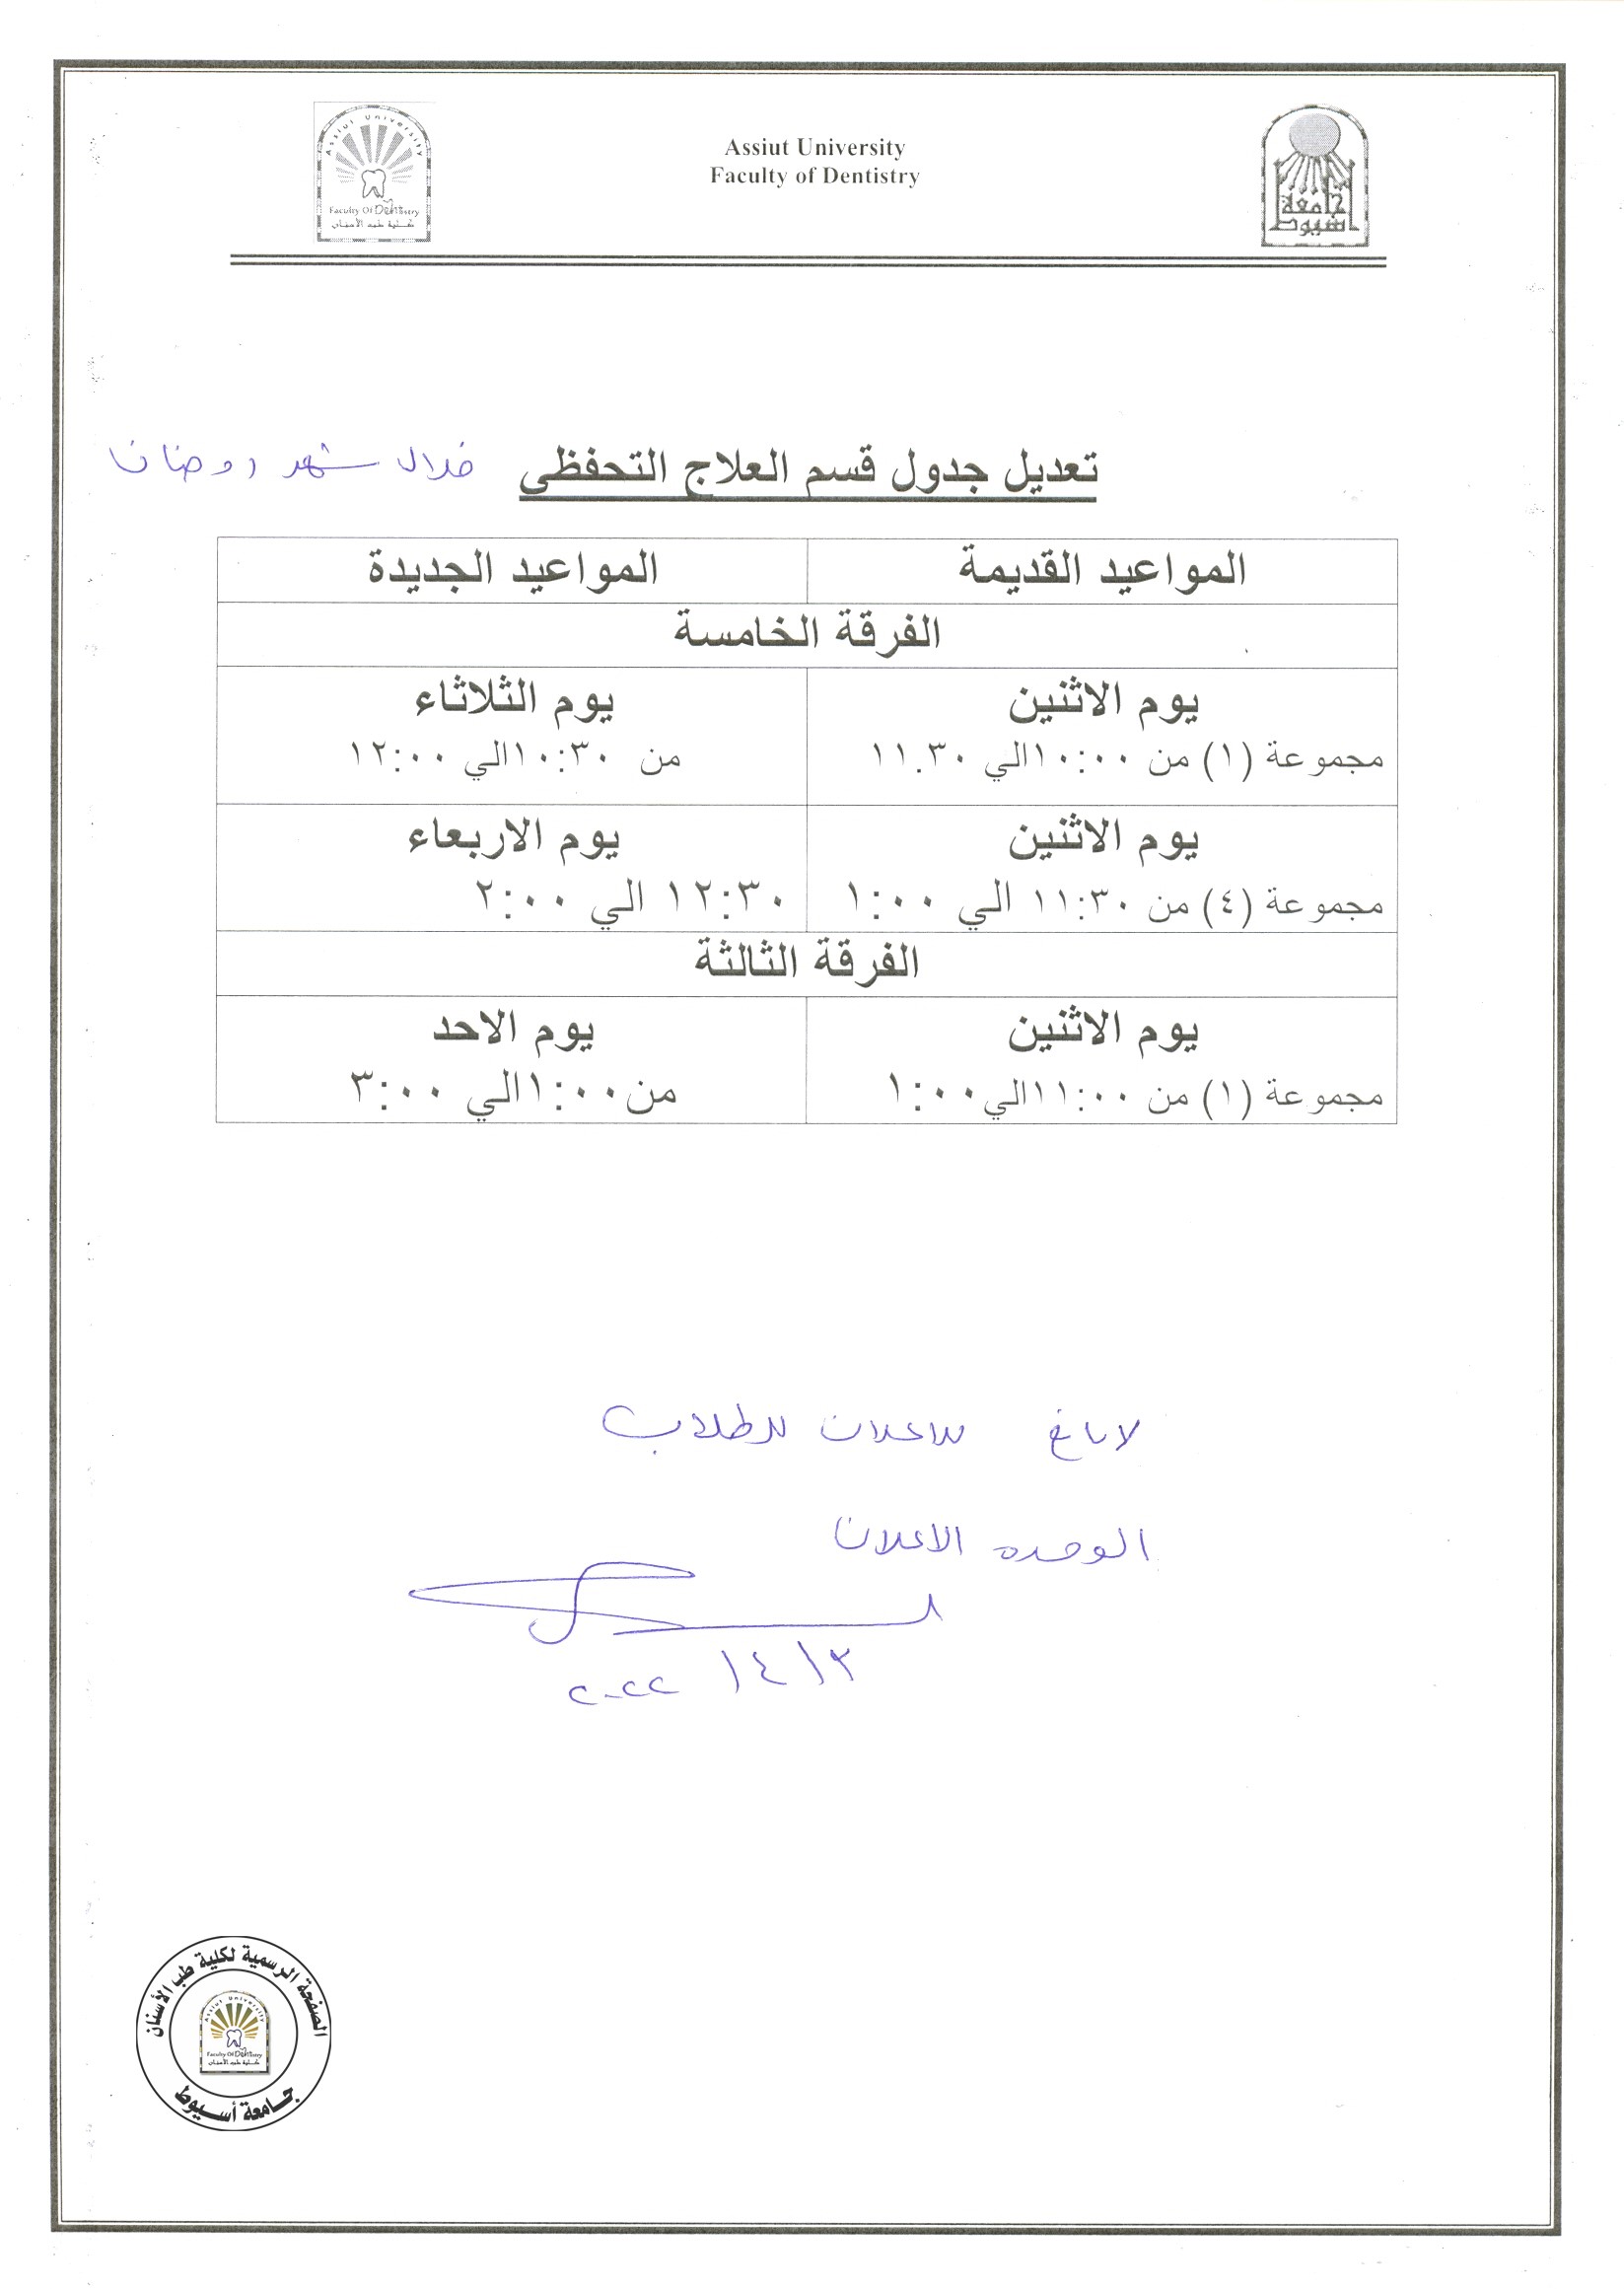 Assiut University
Faculty of Dentistry
Assiut University
Faculty Of Dentistry
كلية طب الأسنان
جامعة
اسيوط
تعديل جدول قسم العلاج التحفظي خلال شهر رمضان
المواعيد القديمة المواعيد الجديدة
الفرقة الخامسة
يوم الاثنين يوم الثلاثاء
مجموعة (١) من ١٠:٠٠الي ١١.٣٠ من ١٠:٣٠الي ١٢:٠٠
يوم الاثنين يوم الاربعاء
مجموعة (٤) من ١١:٣٠ الي ١:٠٠ ١٢:٣٠ الي ٢:٠٠
الفرقة الثالثة
يوم الاثنين يوم الاحد
مجموعة (١) من ١١:٠٠الي١:٠٠ من١:٠٠الي ٣:٠٠
لا مانع للاعلان للطلاب
الوحده الاعلان
٢٠٢٢/٤/٣
الصفحة الرسمية لكلية طب الأسنان
Assiut University
Faculty Of Dentistry
كلية طب الأسنان
جامعة أسيوط